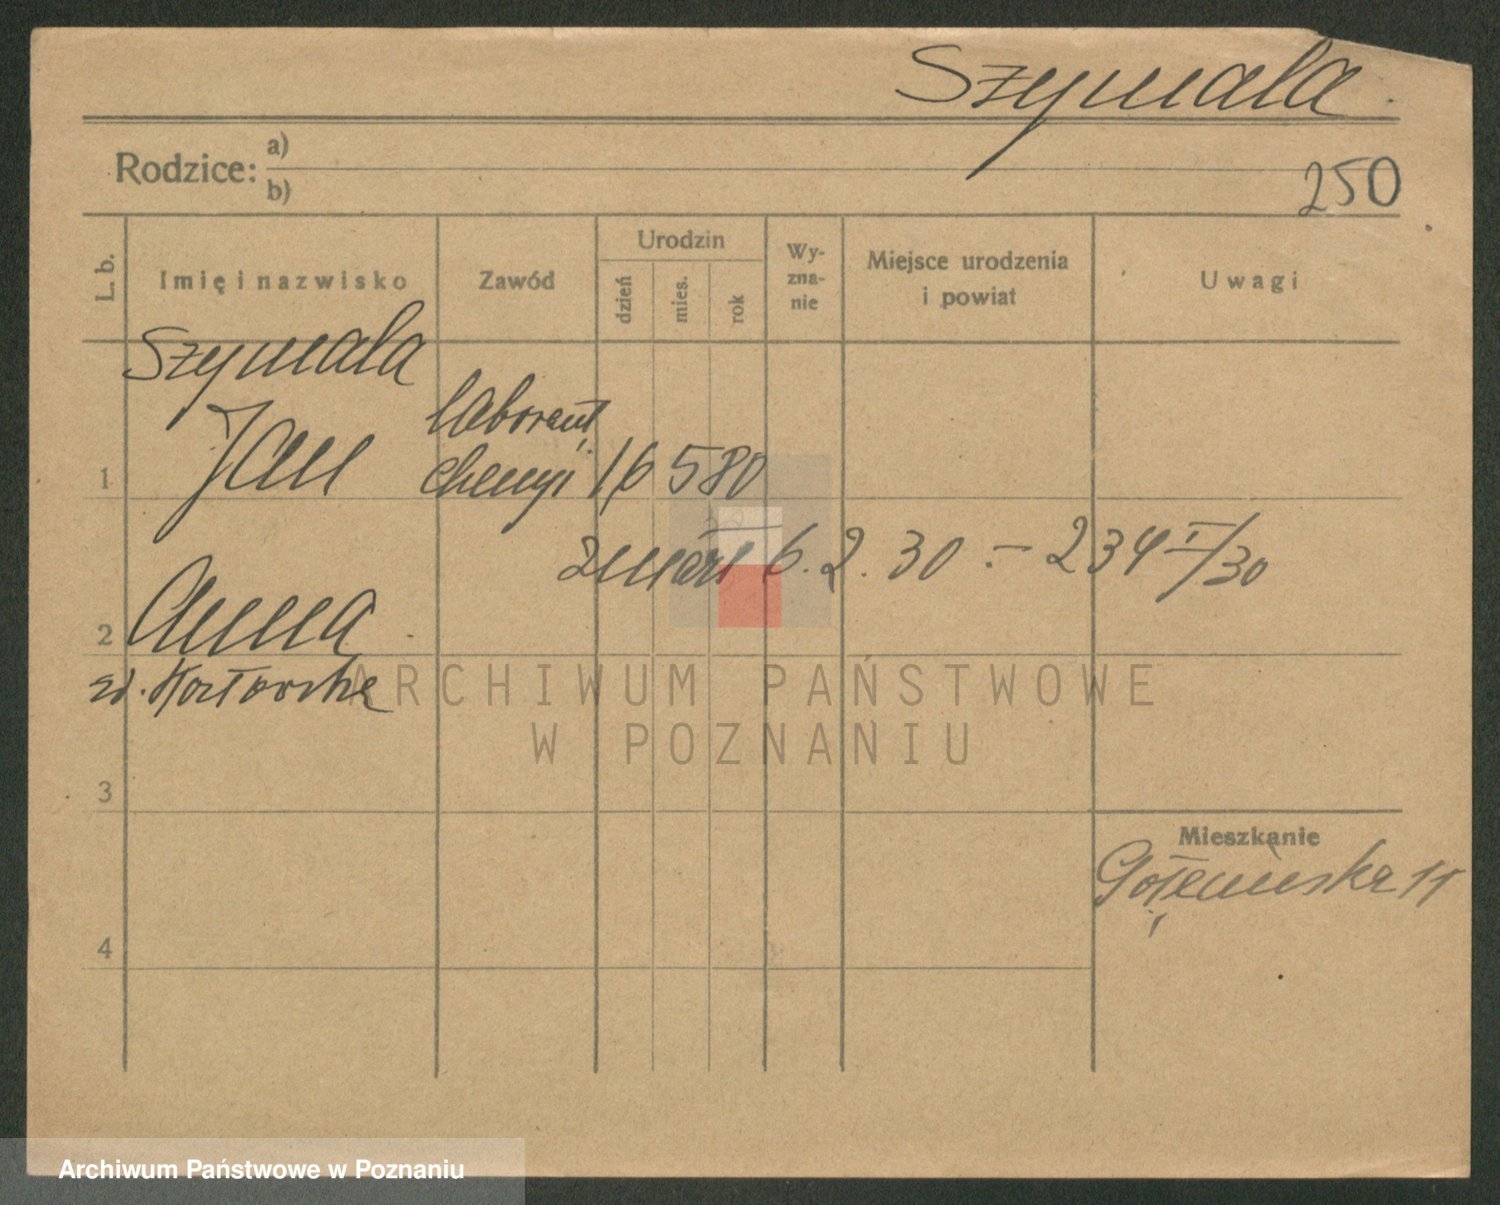 Szymala
Rodzice: a)
b)
250
L. b.
Imię i nazwisko
Zawód
Urodzin
dzień
mies.
rok
Wy-
zna-
nie
Miejsce urodzenia
i powiat
Uwagi
Szymala
1 Jan laborant 16 5 80
zmarł 6.2.30. – 234 I/30
2 Anna
3
Mieszkanie
11
4
ARCHIWUM PAŃSTWOWE
W POZNANIU
Archiwum Państwowe w Poznaniu